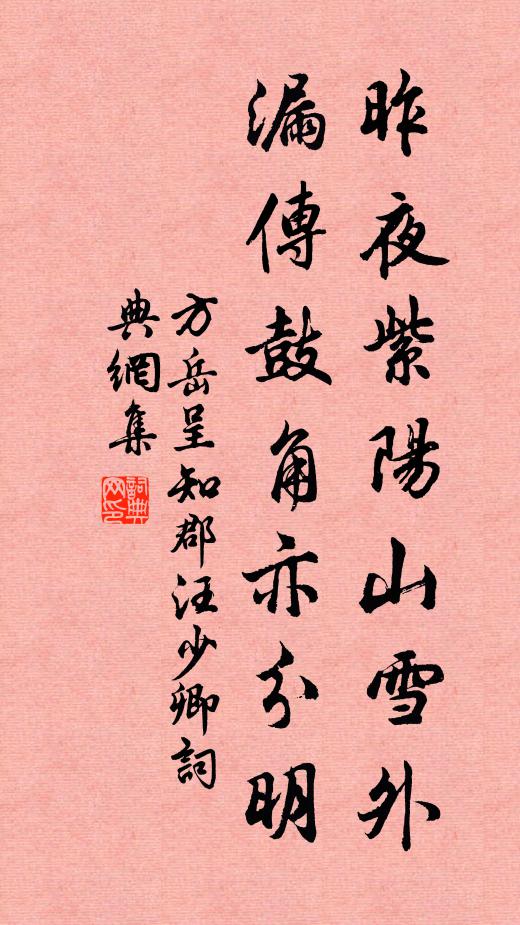 昨夜紫陽山雪外
漏傳鼓角亦分明
方岳呈知郡汪少卿詞
典網集
詞典網印